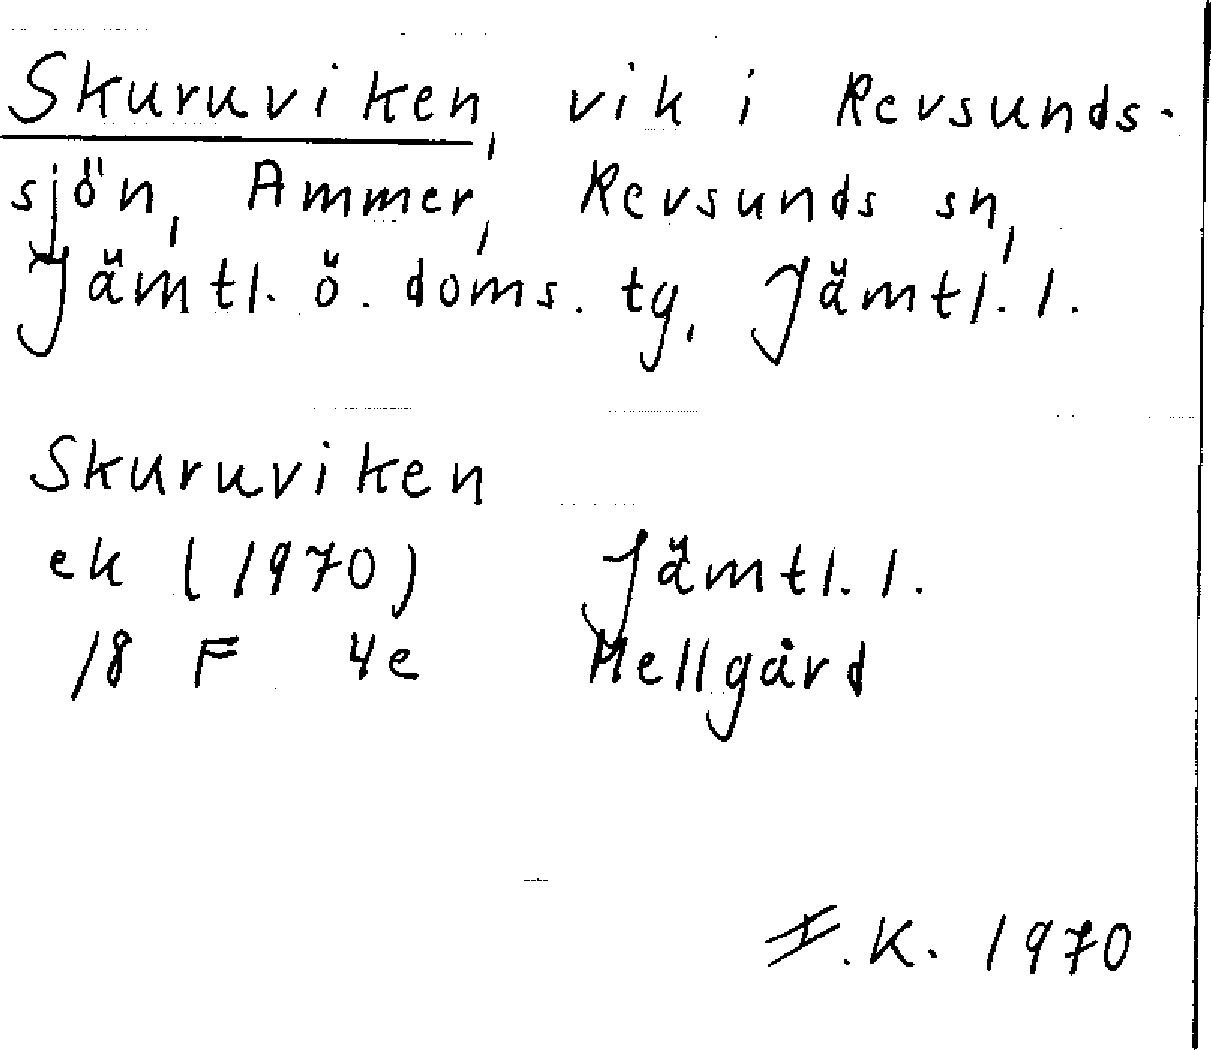 Skuruviken, vik i Revsunds-
sjön, Ammer, Revsunds sn,
Jämtl. ö. doms. tg, Jämtl. l.
Skuruviken
ek (1970) Jämtl. l.
18 F 4e Hellgård
F.K. 1970